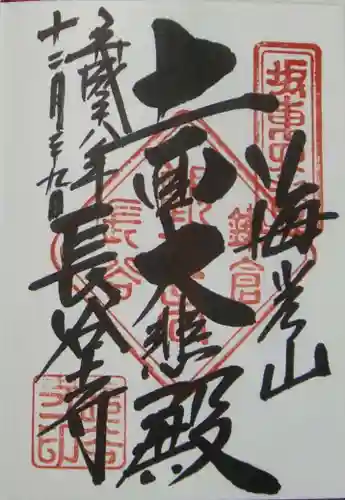 坂東四
海光山
十一面大悲殿
鎌倉
長谷
平成廿八年
十二月廿九日
長谷寺